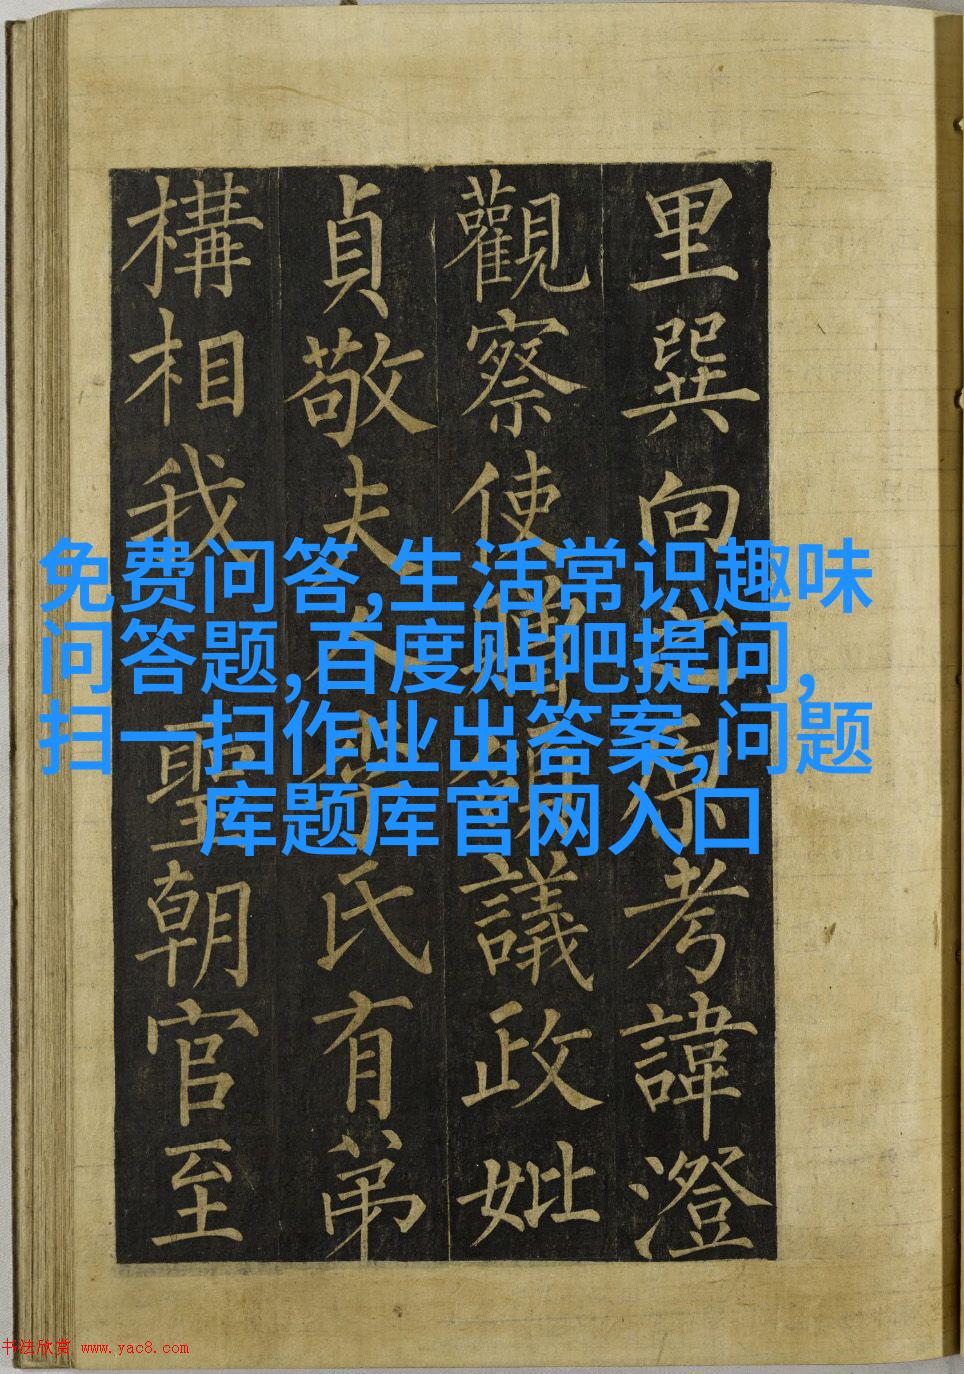 里巽向之原考諱澄
觀察使贈議政妣
貞敬夫人氏有弟
構相我聖朝官至
免费问答,生活常识趣味
问答题,百度贴吧提问,
扫一扫作业出答案,问题
库题库官网入口
书法欣赏 www.yac8.com